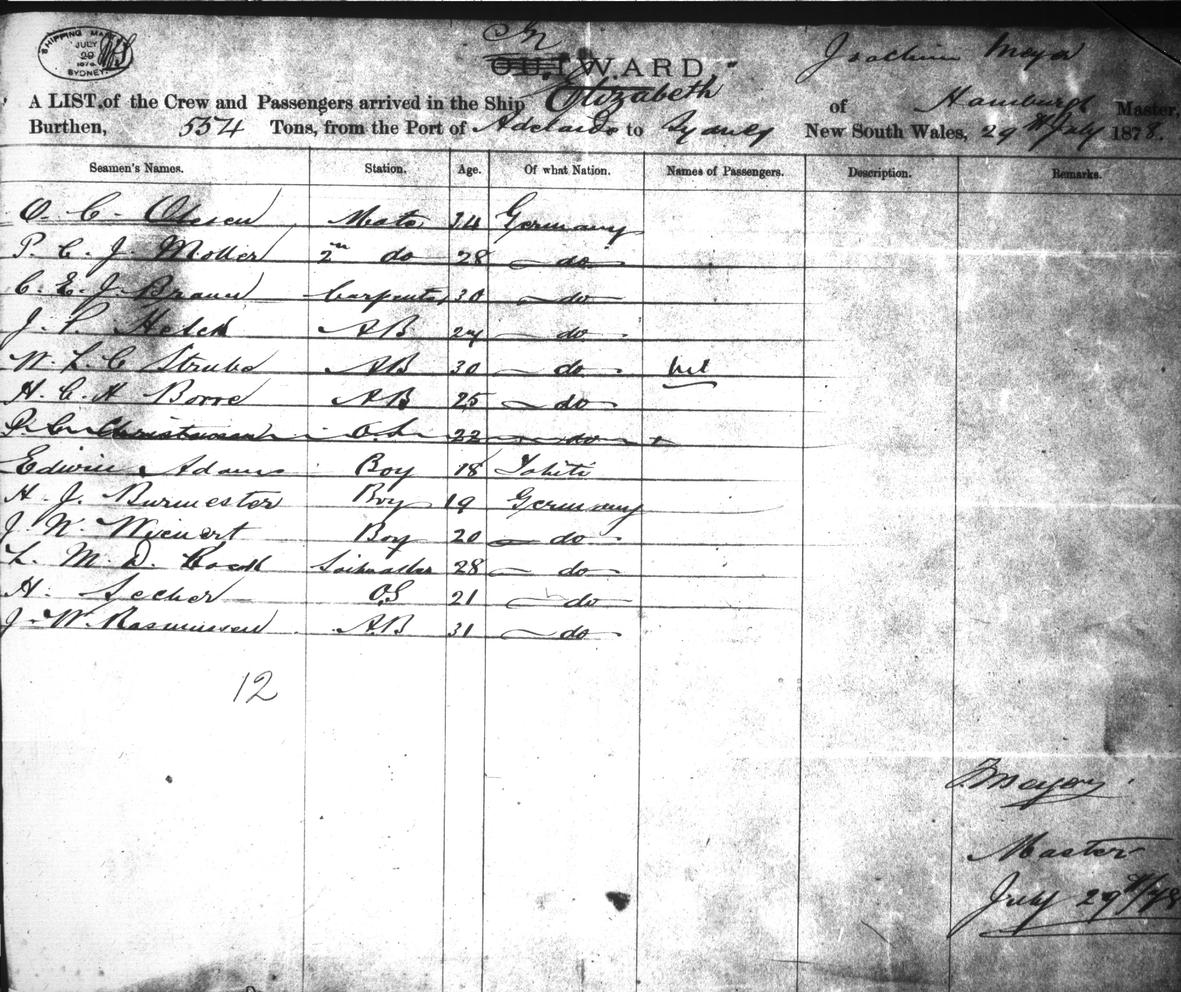 SHIPPING MASTER
JULY
29
1878
SYDNEY
In
OUTWARD
Joachim Meyer
A LIST of the Crew and Passengers arrived in the Ship Elizabeth of Hamburgh Master,
Burthen, 554 Tons, from the Port of Adelaide to Sydney New South Wales, 29th July 1878.
Seamen's Names. Station. Age. Of what Nation. Names of Passengers. Description. Remarks.
O. C. Olesen Mate 34 Germany
P. C. J. Moller 2nd do 28 do
C. E. J. Braun Carpenter 30 do
J. P. A.B 27 do
W. L. C Strube A.B 30 do Nil
H. C. H Borre A.B 25 do
P. C. Christiansen O.S 22 do
Edwin Adams Boy 18 Tahiti
H. J. Burmester Boy 19 Germany
J. W. Wienert Boy 20 do
L. M. D. Sailmaker 28 do
H. Secher OS 21 do
J. W. Rasmussen A.B 31 do
12
J Meyer
Master
July 29th/78